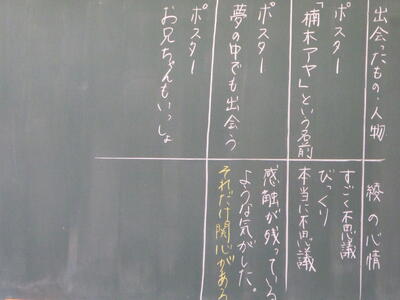 出会ったもの・人物
綾の心情
ポスター
「楠木アヤ」という名前
すごく不思議
びっくり
本当に不思議
ポスター
夢の中でも出会う
感触が残っている
ような気がした。
それだけ関心がある
ポスター
お兄ちゃんもいっしょ